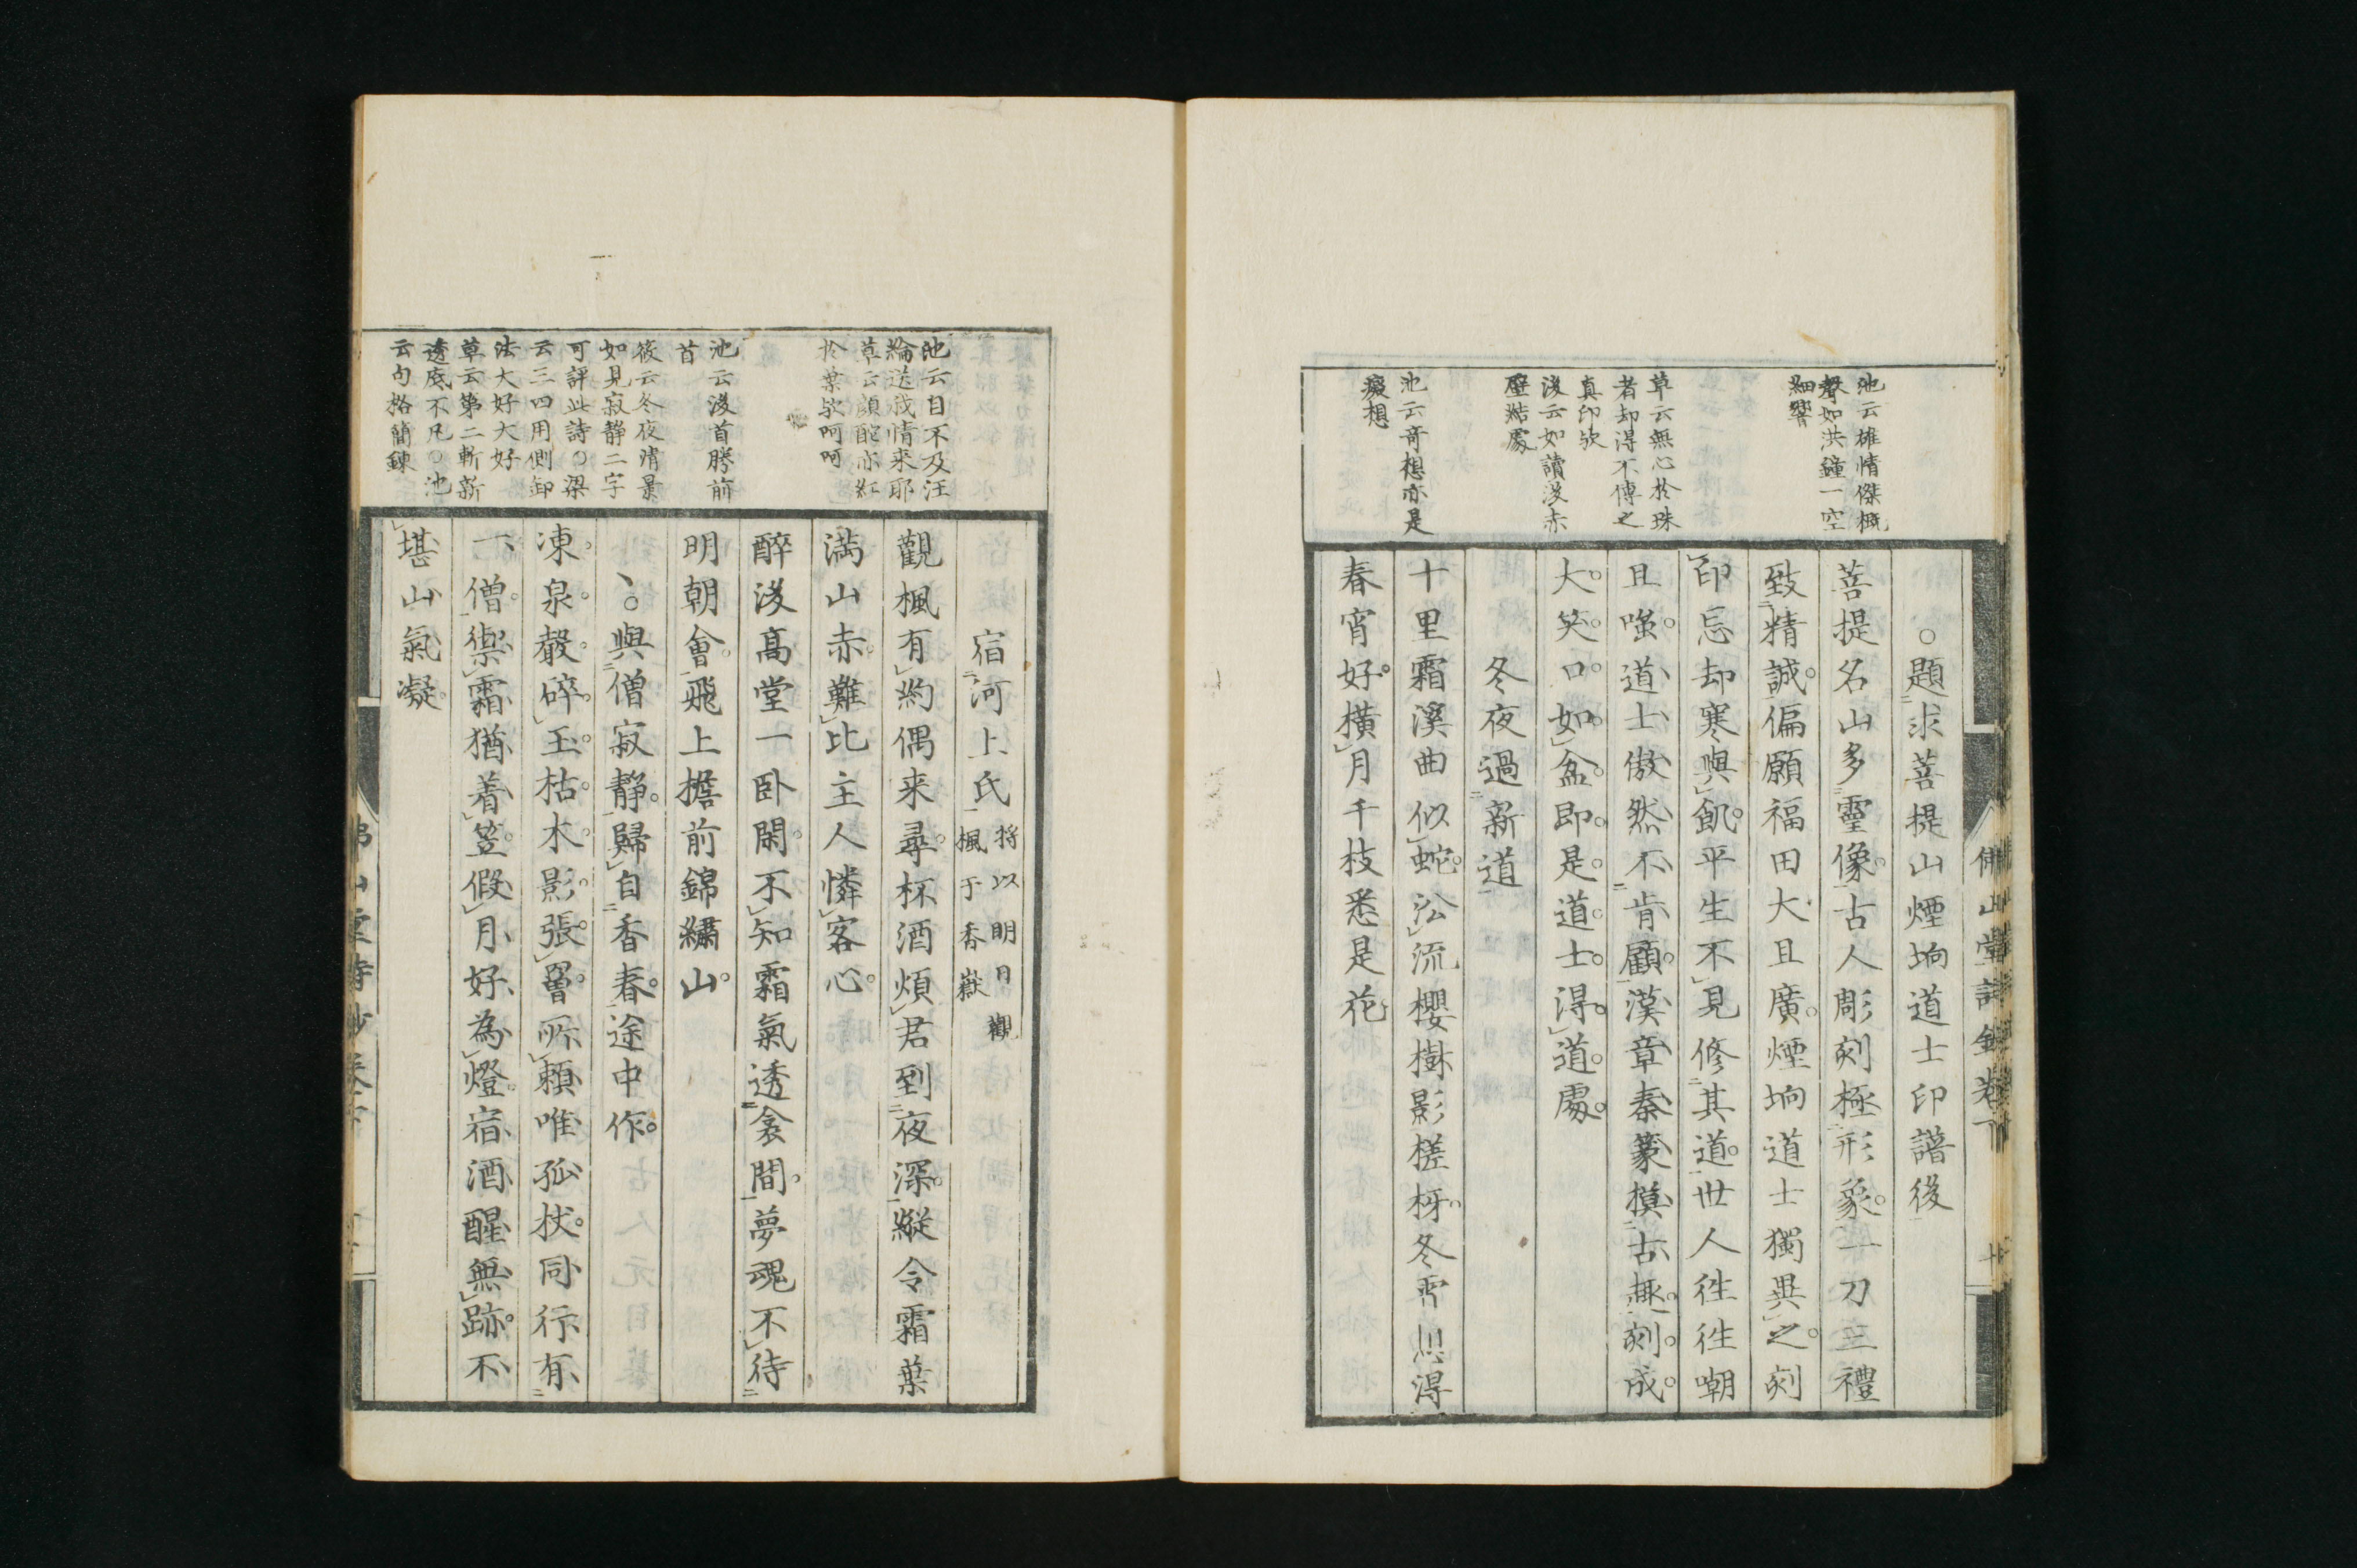 佛山堂詩鈔卷下
池云雄情傑概
聲如洪鐘一空
細響
草云無心於珠
者却得不傳之
真印欤
後云如讀後赤
壁結處
池云奇想亦是
癡想
○題求菩提山煙坰道士印譜後
菩提名山多靈像古人彫刻極形象一刀三禮
致精誠偏願福田大且廣煙坰道士獨異之刻
印忘却寒與飢平生不見修其道世人往往嘲
且嗤道士傲然不肯顧漢章秦篆摸古趣刻成
大笑口如盆即是道士得道處
冬夜過新道
十里霜溪曲似蛇㳂流櫻樹影槎枒冬宵思得
春宵好橫月千枝悉是花
池云自不及汪
綸送我情来耶
草云顔酡亦紅
於葉欤呵呵
池云後首勝前
首
筱云冬夜淸景
如見寂静二字
可評此詩○梁
云三四用側卸
法大好大好
草云第二斬新
透底不凡○池
云句格簡鍊
宿河上氏 将以明日觀
楓于香嶽
觀楓有約偶来尋杯酒煩君到夜深縱令霜葉
満山赤難比主人憐客心
醉後高堂一卧閑不知霜氣透衾間夢魂不待
明朝會飛上檐前錦繡山
、○與僧寂静歸自香春途中作
凍泉聲碎玉枯木影張罾所頼唯孤杖同行有
一僧禦霜猶着笠假月好為燈宿酒醒無跡不
堪山氣凝